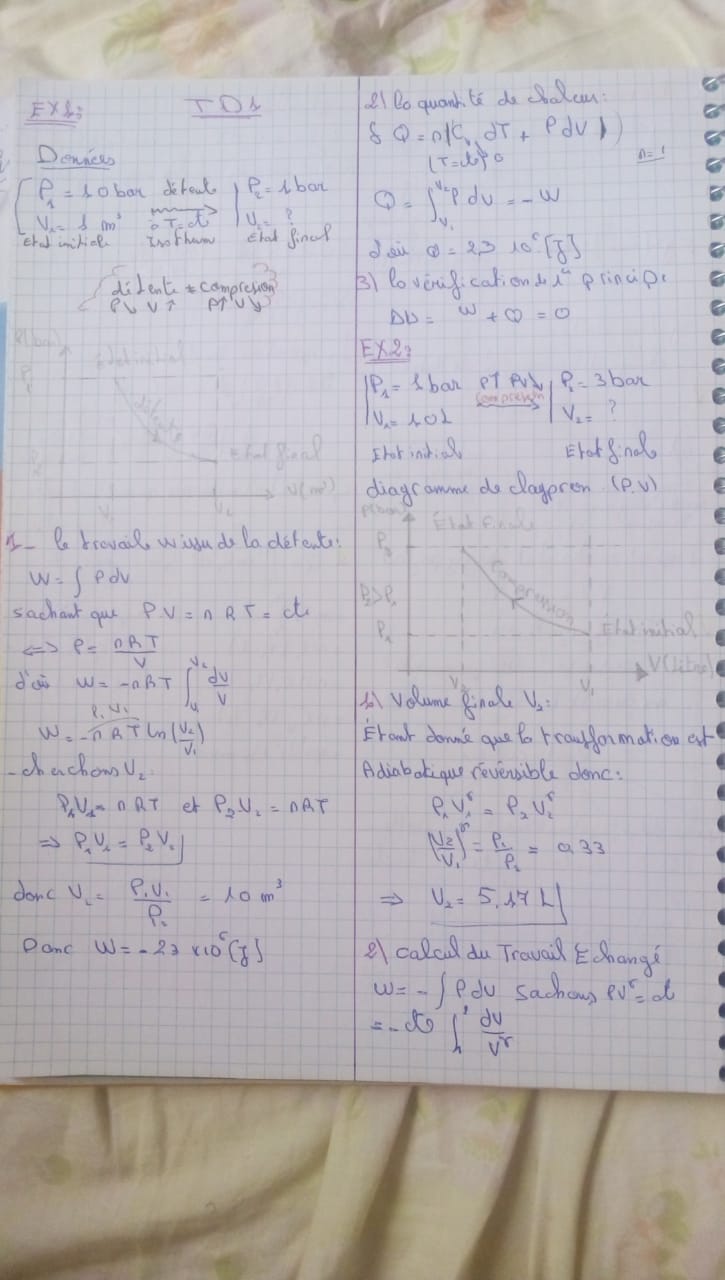 EX1:
TD1
Données
P₁ = 10 bar détente P₂ = 1 bar
V₁ = 1 m³ V₂ = ?
Etat initiale Isotherm Etat final
détente ≠ compression
P↘ V↑ P↑ V↘
P(bar)
P₁ Etat initial
détente
Etat final
V₁ V₂ V(m³)
1_ le travail W issu de la détente:
W = ∫ P dV
sachant que P.V = n R T = cte
⟺ P = nRT / V
d'où W = -nRT ∫ dV / V
P₁ V₁
W = - n R T ln(V₂/V₁)
- cherchons V₂
P₁V₁ = nRT et P₂V₂ = nRT
⇒ P₁V₁ = P₂V₂
donc V₂ = P₁V₁ / P₂ = 10 m³
Donc W = -23 ×10⁵ [J]
2) la quantité de chaleur:
δQ = n(Cv dT + P dV)
n=1
Q = ∫ P dv = - W
d'où Q = 23 10⁵ [J]
3) la vérification de 1er principe
ΔU = W + Q = 0
EX2:
P₁ = 1 bar P↑ V↘ P₂ = 3 bar
V₁ = 10L compression V₂ = ?
Etat initial Etat finale
diagramme de clapyron (P.V)
P(bar) État finale
P₂
P₂>P₁ Compression
P₁ État initial
V₂ V₁ V(litre)
1) Volume finale V₂:
Étant donné que la transformation est
Adiabatique réversible donc:
P₁ V₁^γ = P₂ V₂^γ
(V₂/V₁)^γ = P₁/P₂ = 0,33
⇒ V₂ = 5,17 L
2) calcul du Travail Echangé
W = - ∫ P dV sachons PV^γ = ct
= - cte ∫ dV / V^γ